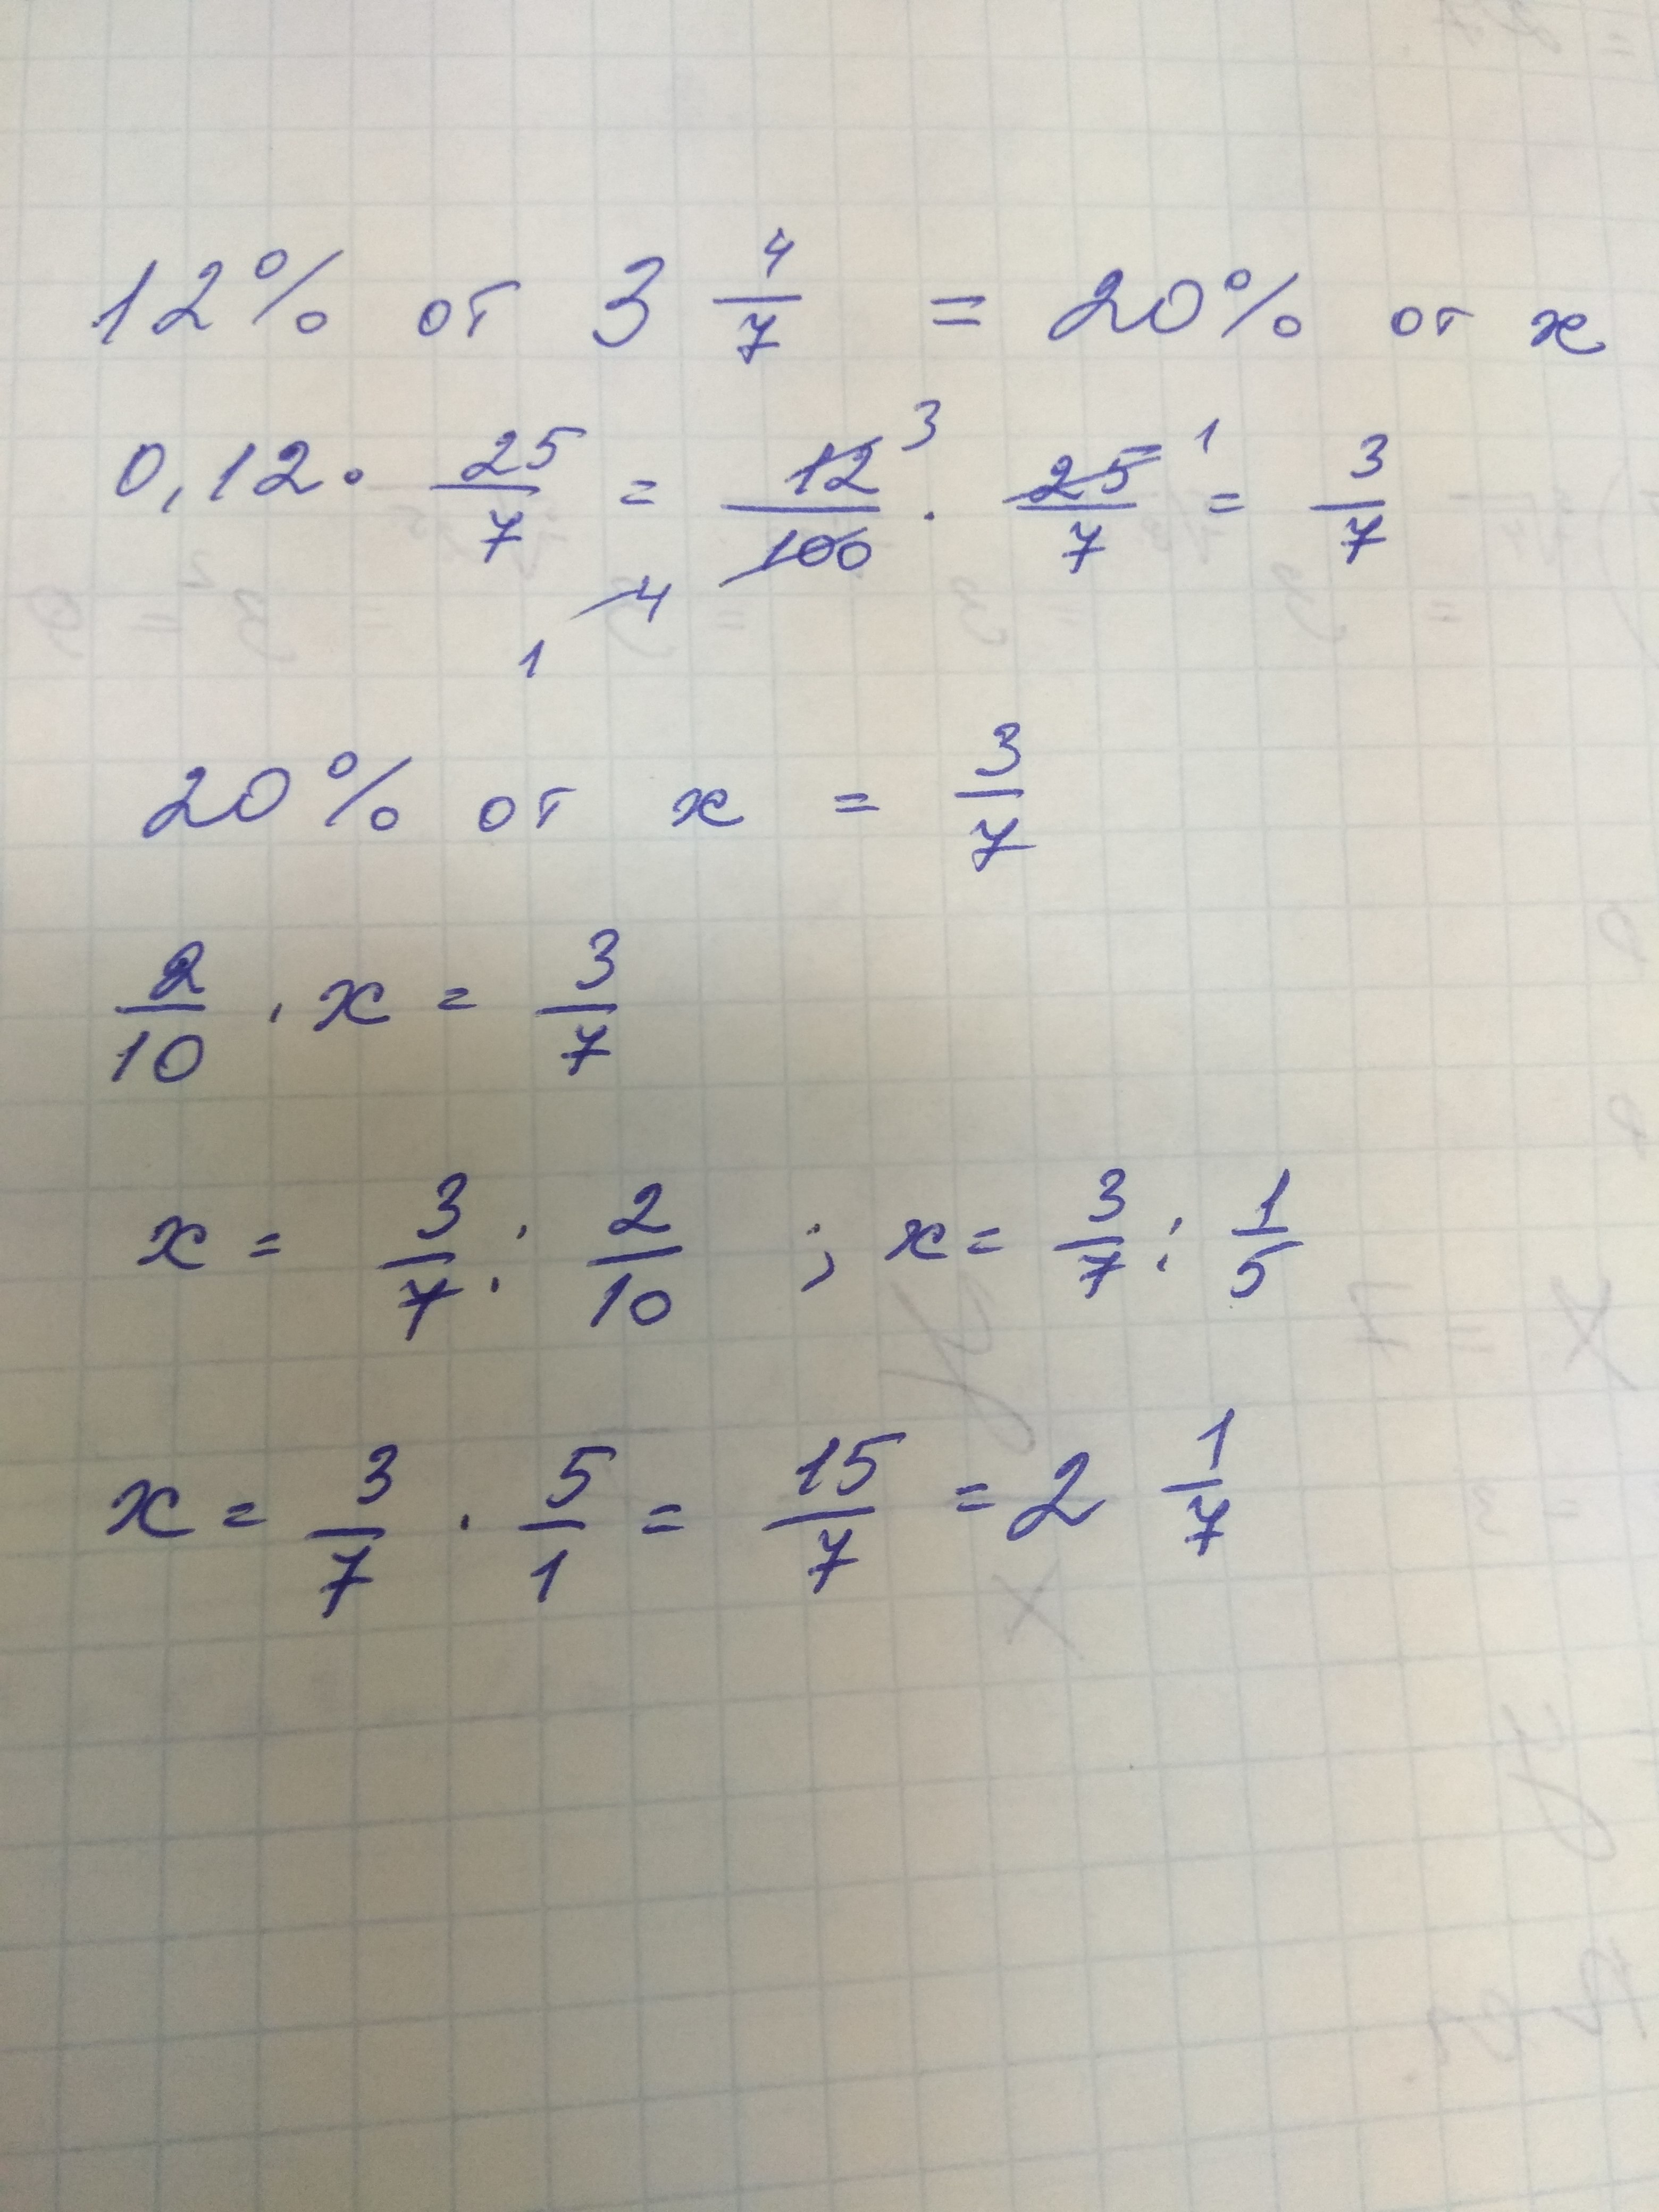 12% от 3 4/7 = 20% от x
0,12 · 25/7 = 12/100 · 25/7 = 3/7
3 1
4
1
20% от x = 3/7
2/10 · x = 3/7
x = 3/7 : 2/10 ; x = 3/7 : 1/5
x = 3/7 · 5/1 = 15/7 = 2 1/7